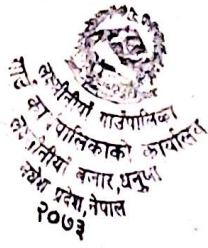 लक्ष्मीनियाँ गाउँपालिका
गाउँ कार्यपालिकाको कार्यालय
लक्ष्मीनियाँ बजार, धनुषा
मधेश प्रदेश, नेपाल
२०७३